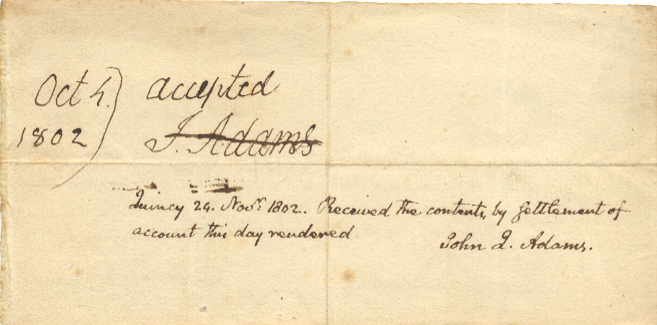 Oct 4. accepted
1802 J. Adams
Quincy 24. Novr. 1802. Received the contents, by settlement of
account this day rendered
John Q. Adams.